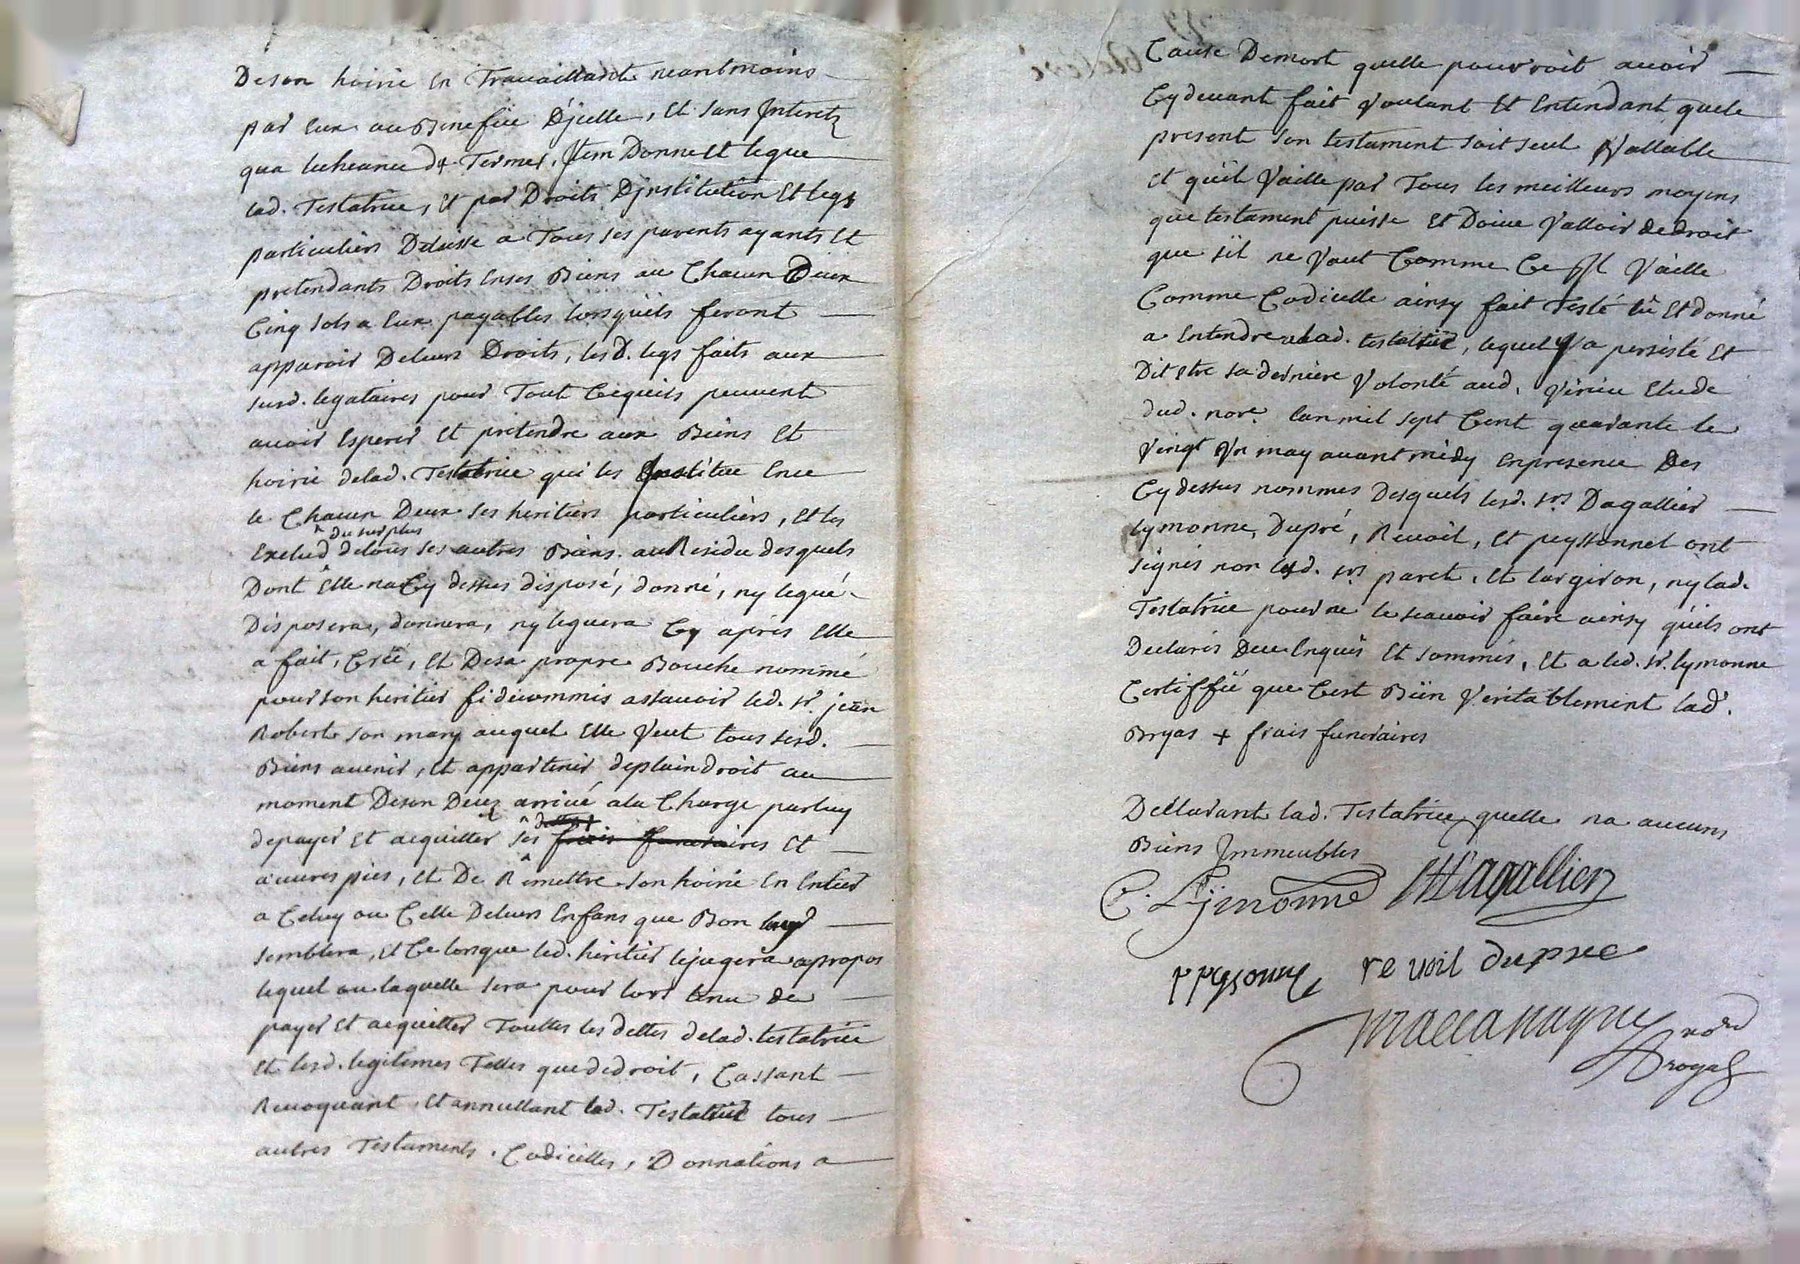 De son hoirie en Travaillants neantmoins
par eux au Benefice D'jcelle, et sans Interetz
qua lecheance des Termes. Jtem Donne et legue
lad. Testatrice, et par Droits Djnstitution et legs
particuliers Delaisse a Tous ses parents ayants et
pretendants Droits en ses Biens au Chacun Deux
Cinq sols a eux payables lorsquils feront
apparoir De leurs Droits, lesd. legs faits aux
susd. legataires pour Tout Cequils peuvent
avoir Esperer et pretendre aux Biens et
hoirie delad. Testatrice qui les Jnstitue en ce
le Chacun Deux ses heritiers particuliers, et les
Exclud
du surplus
de tous ses autres Biens. au Residu desquels
Dont Elle na Cy dessus disposé, donné, ny legué
Disposera, donnera, ny leguera Cy aprés Elle
a fait, Creé, et Desa propre Bouche nommé
pour son heritier fideicommis assavoir led. sr. jean
Robert son mary auquel Elle Veut tous sesd.
Biens avenir, et appartenir deplain droit au
moment Deson Decez arrivé ala Charge parluy
depayer et acquitter ses frais funeraires et
œuvres pies, et De Remettre son hoirie En Entier
a Celuy ou Celle Deleurs Enfans que Bon luy
semblera, et Ce lorsque led. heritier lejugera apropos
lequel ou laquelle sera pour lors tenu de
payer et acquitter Touttes les dettes delad. testatrice
et lesd. legitimes Telles quededroit, Cassant
Revoquant et annullant lad. Testatrice tous
autres Testaments, Codicilles, Donnations a
Cause Demort quelle pourroit avoir
Cydevant fait Voulant et Entendant quele
present son testament soit seul Vallable
et quil Vaille par Tous les meilleurs moyens
que testament puisse et Doive Valloir dedroit
que sil ne Vaut Comme Ce Jl Vaille
Comme Codicille ainsy fait Testé lû et donné
a Entendre alad. testatrice, lequel Y a persisté et
Dit etre sa derniere Volonté aud. Virieu Etude
dud. nore. Lan mil sept Cent quarante le
Vingt Un may avant midy enpresence Des
Cydessus nommes Desquels lesd. srs Dagallier
lymonne, Dupré, Revoil, et peyssonnel ont
signés non lesd. srs paret, et largiron, ny lad.
Testatrice pour ne le scavoir faire ainsy quils ont
Declarés Dece Enquis et sommés, et a led. sr. lymonne
Certiffié que Cest Bien Veritablement lad.
Bryas + frais funeraires
Declarant lad. Testatrice quelle na aucuns
Biens Jmmeubles
C. Lymonne Dagallier
revoil dupre
royal